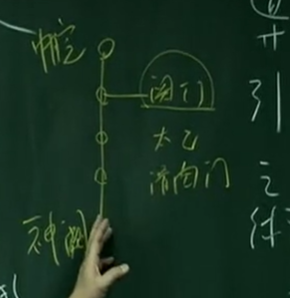 中脘
関门
太乙
滑肉门
神阙
引
之